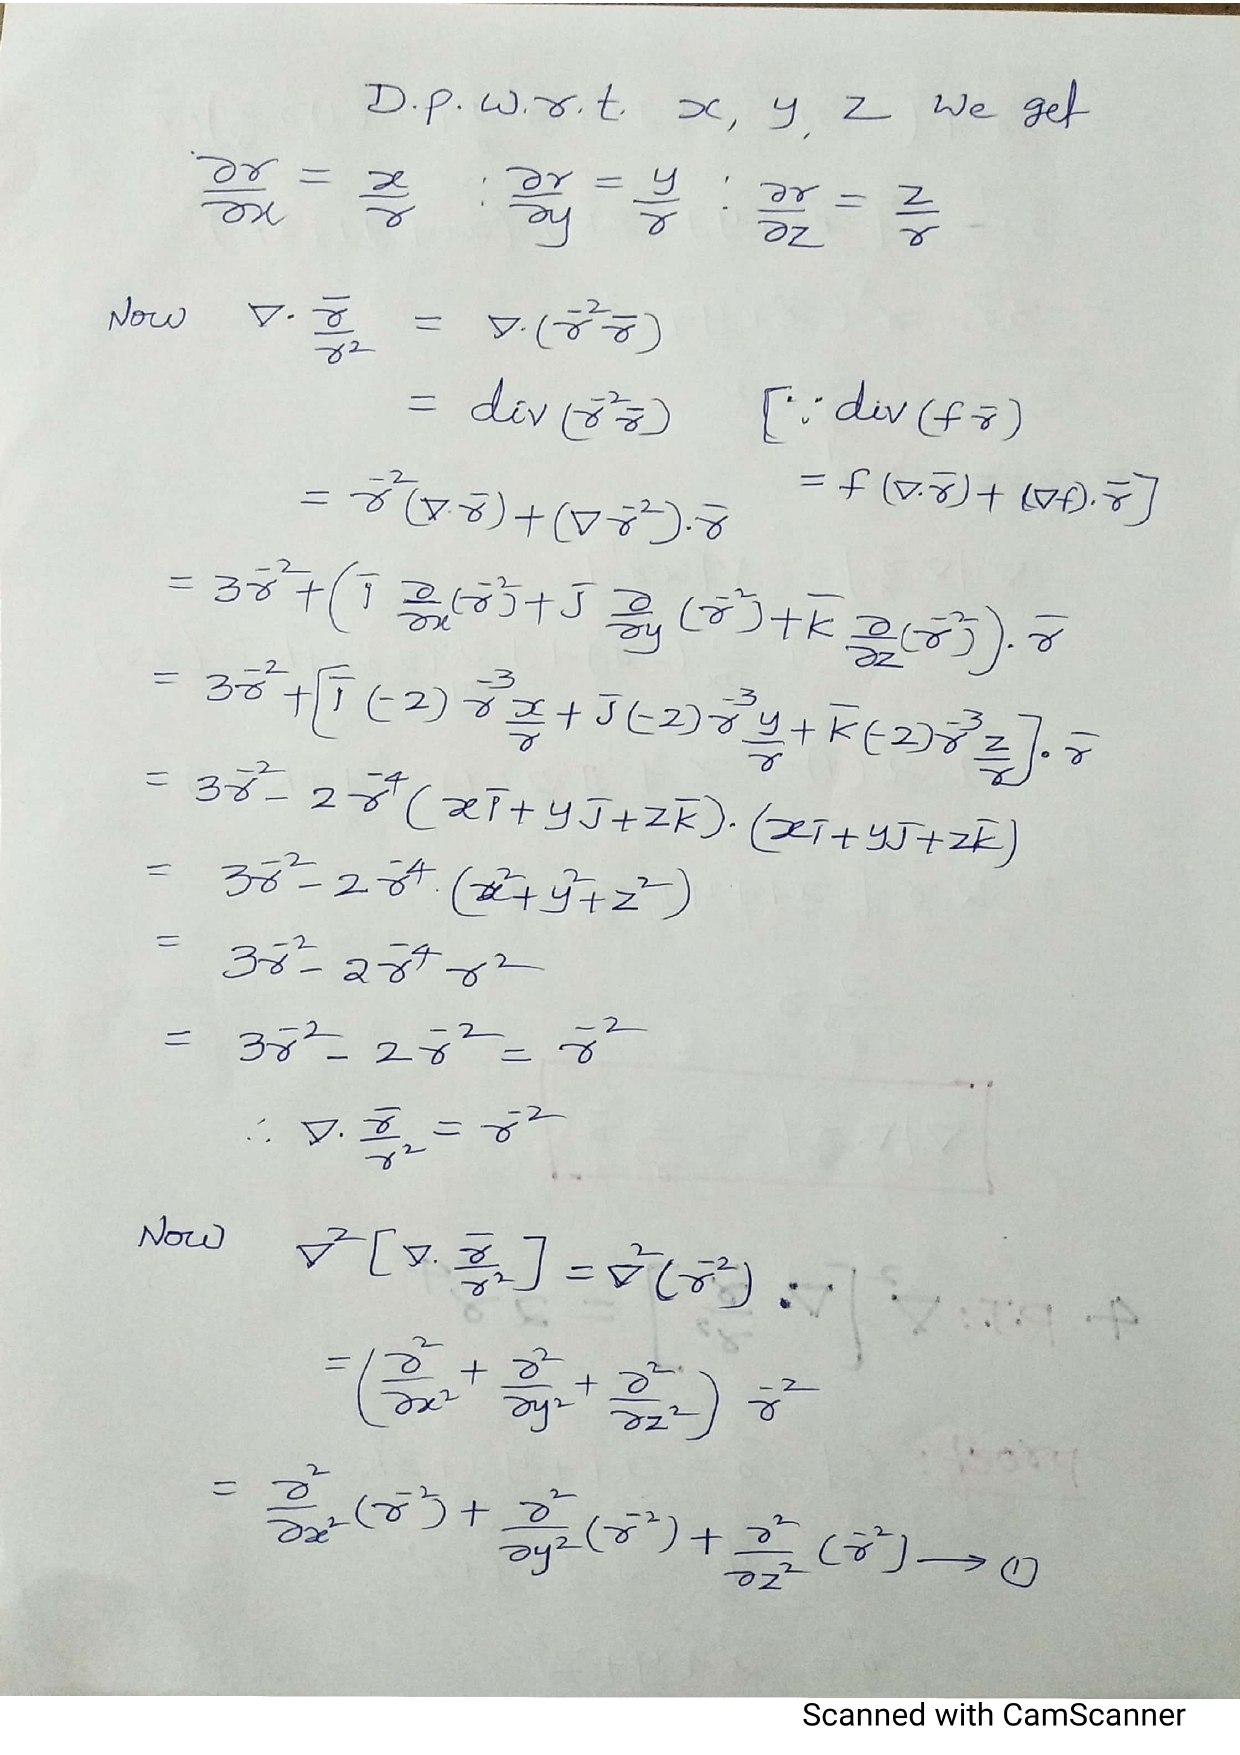 D.P. w.r.t. x, y, z we get
∂r/∂x = x/r : ∂r/∂y = y/r : ∂r/∂z = z/r
Now ∇. r̄/r² = ∇.(r⁻² r̄)
= div(r⁻² r̄) [∵ div(f r̄)
= f(∇.r̄)+(∇f).r̄]
= r⁻²(∇.r̄)+(∇r⁻²).r̄
= 3r⁻²+(ī ∂/∂x(r⁻²)+j̄ ∂/∂y(r⁻²)+k̄ ∂/∂z(r⁻²)).r̄
= 3r⁻²+[ī(-2)r⁻³ x/r + j̄(-2)r⁻³ y/r + k̄(-2)r⁻³ z/r].r̄
= 3r⁻² - 2r⁻⁴(xī+yj̄+zk̄).(xī+yj̄+zk̄)
= 3r⁻² - 2r⁻⁴.(x²+y²+z²)
= 3r⁻² - 2r⁻⁴ r²
= 3r⁻² - 2r⁻² = r⁻²
∴ ∇. r̄/r² = r⁻²
Now ∇²[∇. r̄/r²] = ∇²(r⁻²)
= (∂²/∂x² + ∂²/∂y² + ∂²/∂z²) r⁻²
= ∂²/∂x²(r⁻²) + ∂²/∂y²(r⁻²) + ∂²/∂z²(r⁻²) → ①
Scanned with CamScanner